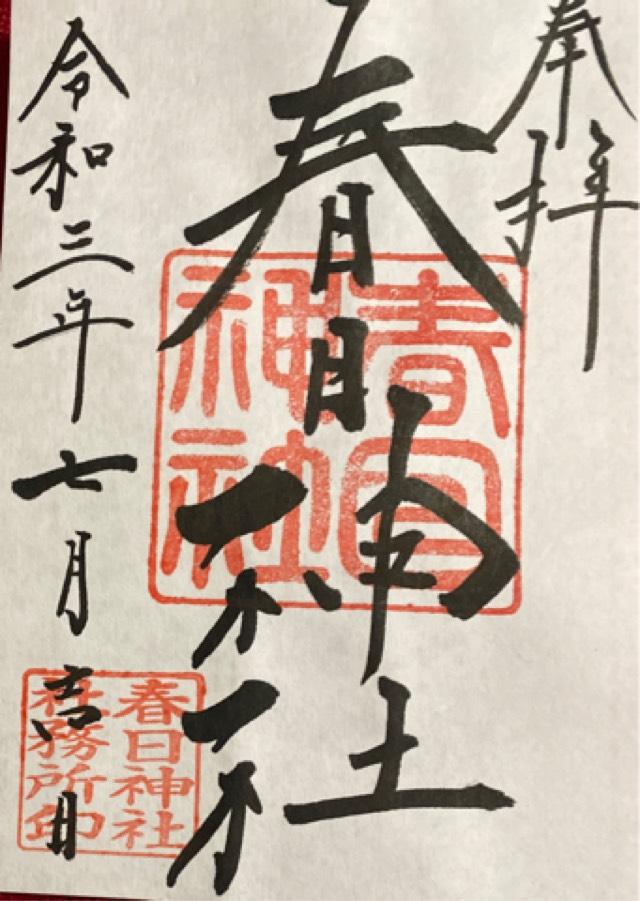 奉拝
春日神社
令和三年七月吉日
春日神社
春日神社
社務所印